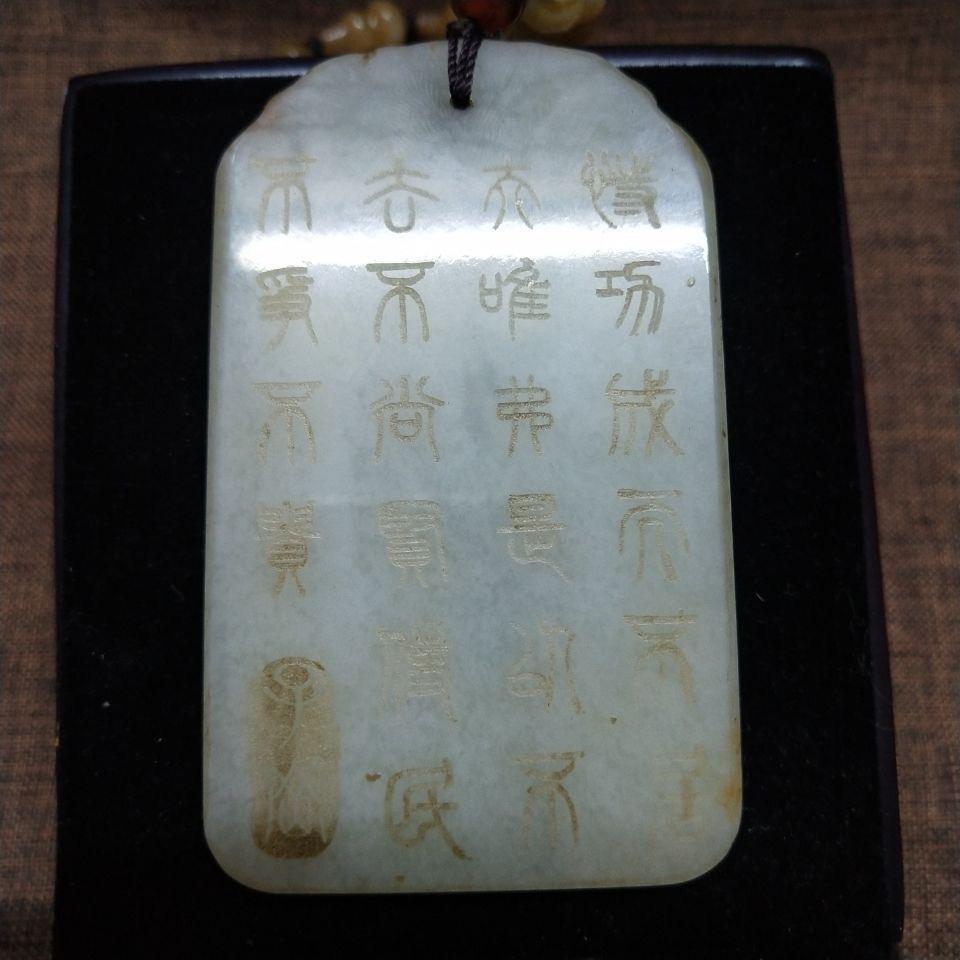 恃功成而不居
夫唯弗是以不
去不尚賢使民
不爭不貴